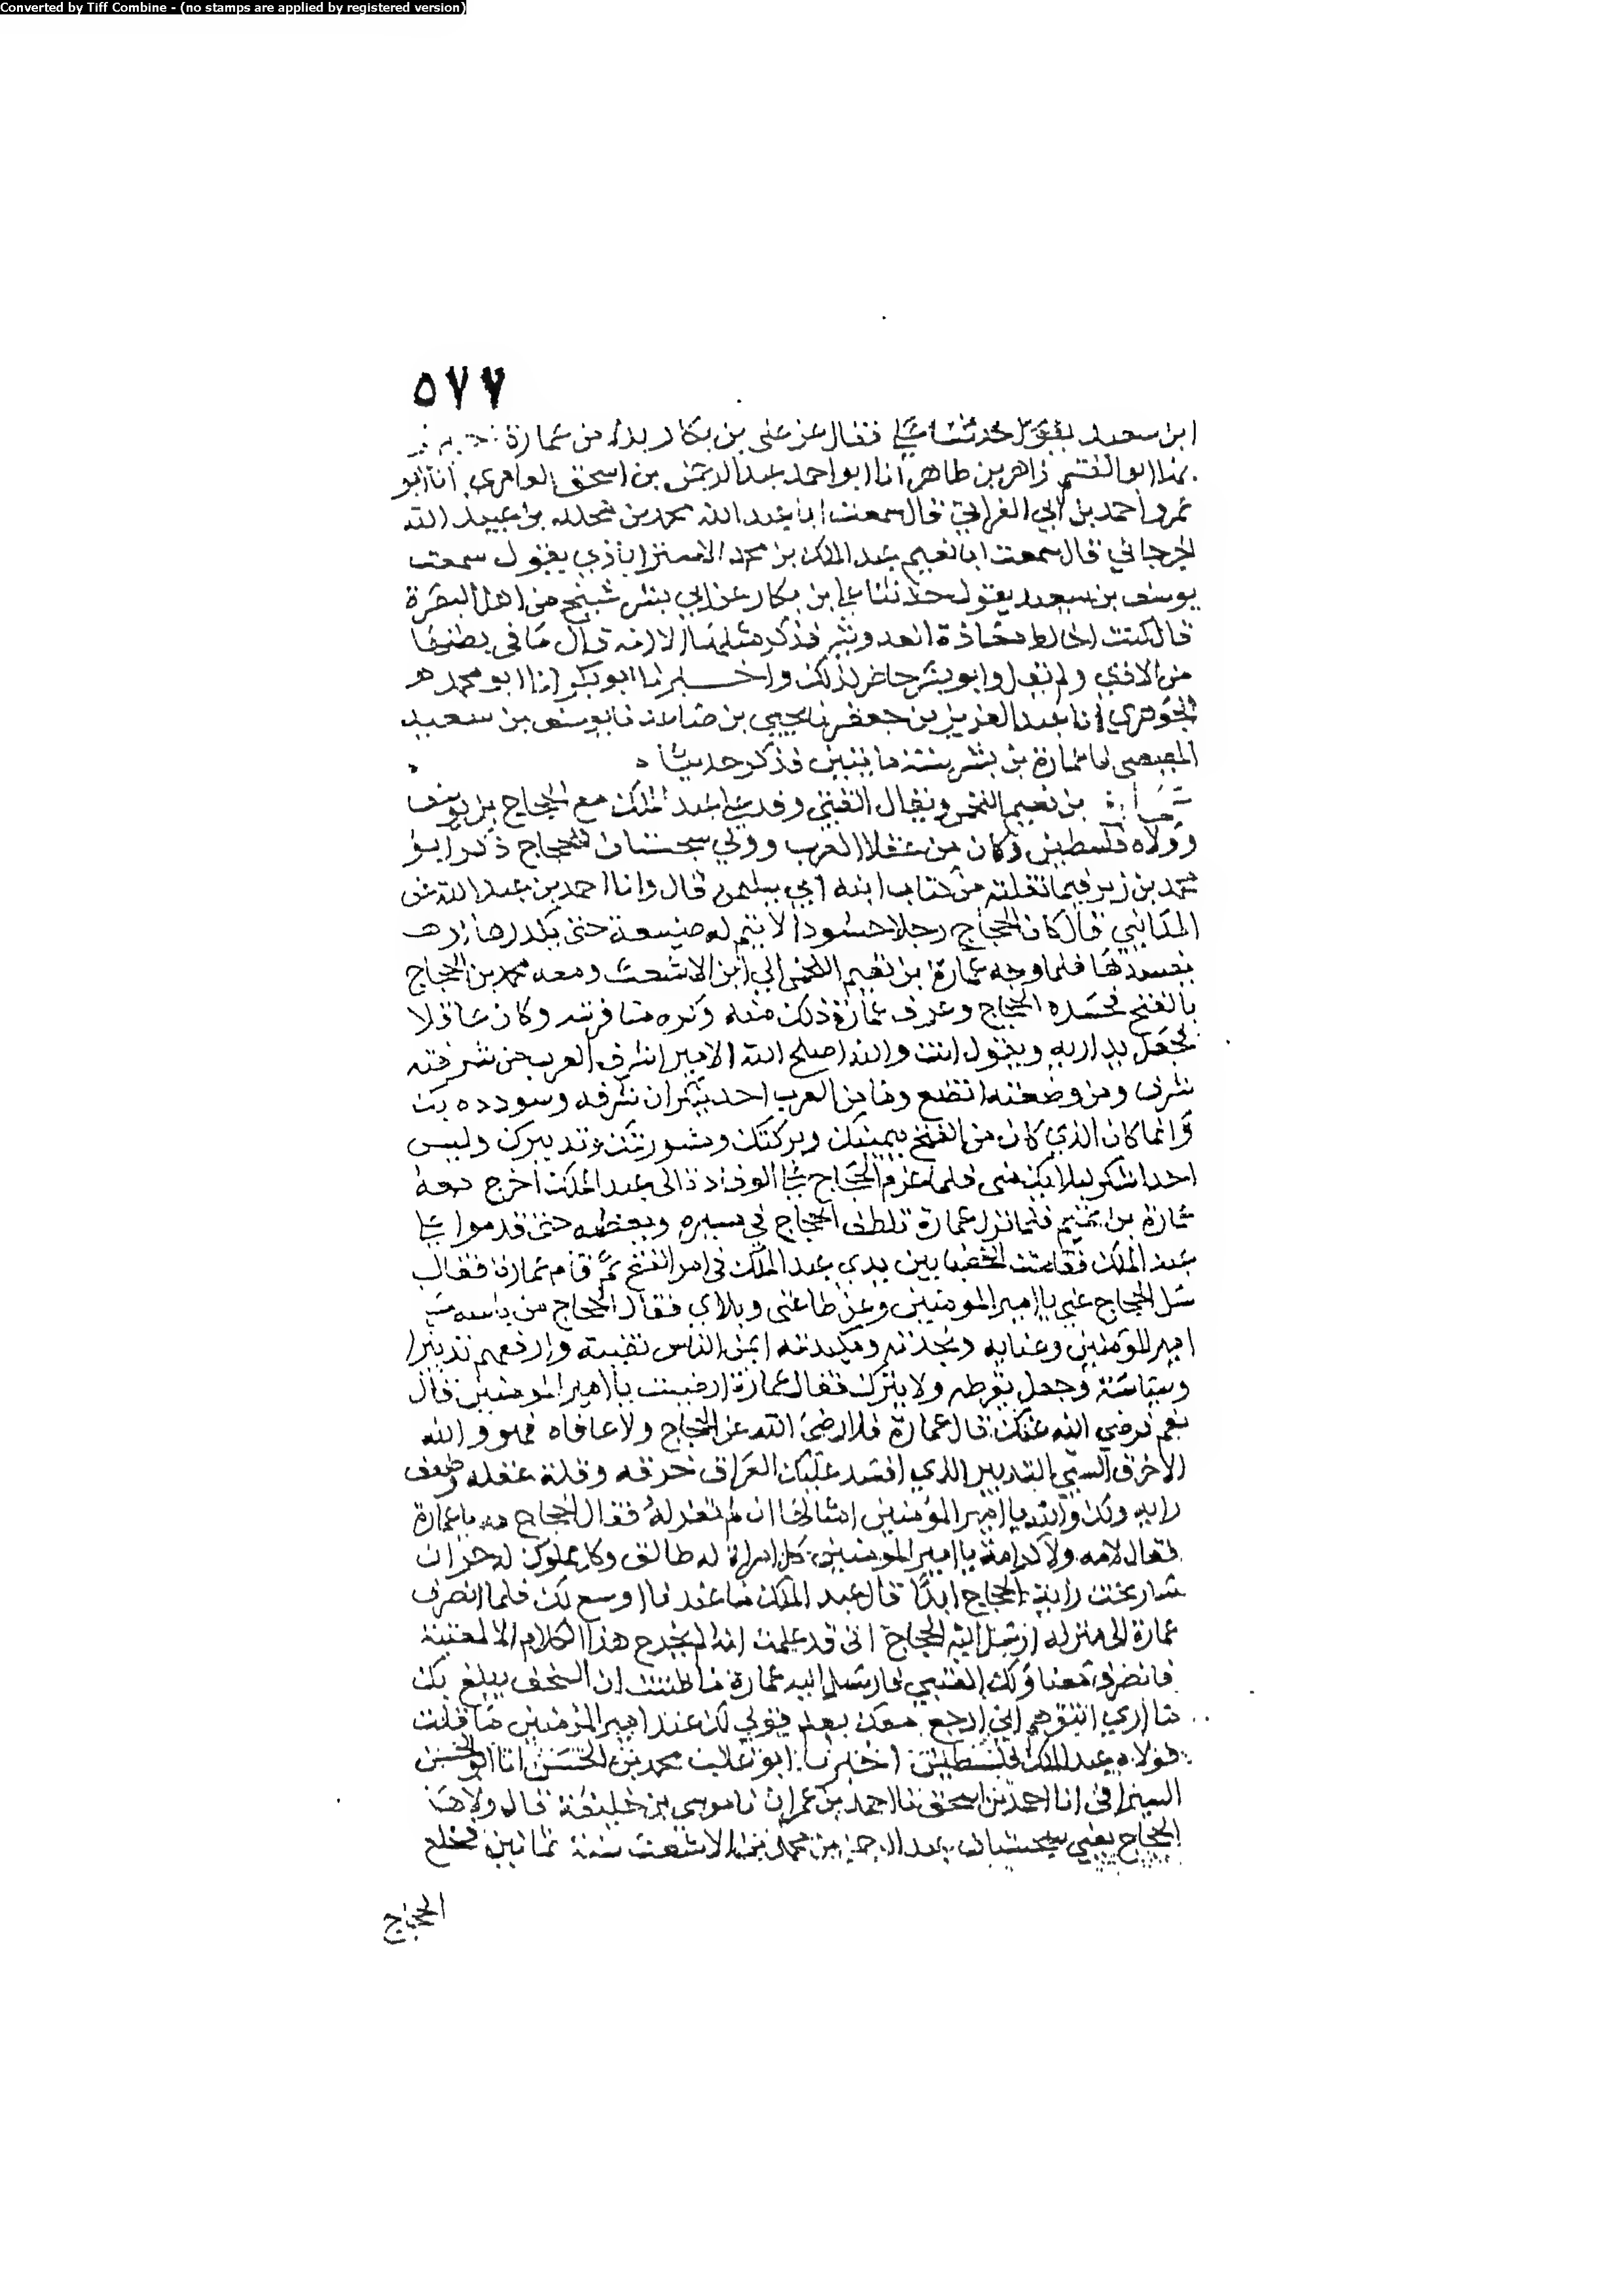 Converted by Tiff Combine - (no stamps are applied by registered version)
٥٧٧
ابن سعيد يقول حدثنا علي فقال عن علي بن بكار بدلا من عمارة
ابو القسم زاهر بن طاهر انا ابو احمد عبد الرحمن بن اسحق العامري انا ابو
عمرو احمد بن ابي الفراتي قال سمعت ابا عبد الله محمد بن عبيد الله
الجرجاني قال سمعت ابا نعيم عبد الملك بن محمد الاستراباذي يقول سمعت
يوسف بن سعيد يقول حدثنا علي بن بكار عن ابي بشر شيخ من اهل البصرة
قال كنت اذكر مثلها الا انه قال ما في بطنها
من الاذي ولم يقل وابو بشر حاضر لذلك واخبرنا ابو بكر انا ابو محمد
الجوهري انا عبد العزيز بن جعفر نا يحيي بن صاعد نا يوسف بن سعيد
المصيصي نا عمارة بن بشر سنة مايتين فذكر حديثا
عمارة بن تميم اللخمي ويقال القيني وفد علي عبد الملك مع الحجاج بن يوسف
وولاه فلسطين وكان من عقلا العرب وولي سجستان للحجاج ذكر ابو
محمد بن زبر فيما نقلته من كتاب ابنه ابي سليمن قال وانا احمد بن عبد الله عن
المدايني قال كان الحجاج رجلا حسودا لا يتم له صنيعة حتى يكدرها
يفسدها فلما وجه عمارة بن تميم اللخمي الي ابن الاشعث ومعه محمد بن الحجاج
بالفتح فحسده الحجاج وعرف عمارة ذلك منه وكره منافرته وكان عاقلا
فجعل يداريه ويقول انت والله اصلح الله الامير اشرف العرب من شرفته
شرف ومن وضعته اتضع وما من العرب احد ينكر ان شرفه وسودده بك
وانما كان الذي كان من الفتح بيمنك وبركتك ومشورتك وتدبيرك وليس
احد اشكر لبلايك مني فلما عزم الحجاج علي الوفادة الى عبد الملك اخرج معه
عمارة بن تميم فلما نزل عمارة تلطف الحجاج في مسيره ويعظمه حتى قدموا علي
عبد الملك فقامت الخطبا بين يدي عبد الملك في امر الفتح ثم قام عمارة فقال
سل الحجاج عني يا امير المومنين وعن طاعتي وبلاي فقال الحجاج من باسه
امير المومنين وعنايه ونجدته ومكيدته ايمن الناس نقيبة وارفعهم تدبيرا
وسياسة وجعل يقرظه ولا يترك فقال عمارة ارضيت يا امير المومنين قال
نعم فرضي الله عنك قال عمارة فلا رضي الله عن الحجاج ولا عافاه فهو والله
الاخرق السيي التدبير الذي افسد عليك العراق خرقه وقلة عقله وضعف
رايه ولك والله يا امير المؤمنين امثالها ان لم تعزله فقال الحجاج مه يا عمارة
فقال لا مه ولا كرامة يا امير المومنين كل امراة له طالق وكل مملوك له حر ان
سار تحت راية الحجاج ابدا قال عبد الملك ما عندنا اوسع لك فلما انصرف
عمارة الى منزله ارسل اليه الحجاج اني قد علمت انه لم يخرج هذا الكلام الا لمعتبة
فانصرف معنا ولك العتبي فارسل اليه عمارة ما ظننت ان السخف يبلغ بك
ما اري اتتوهم اني ارجع معك بعد قولي لك عند امير المؤمنين ما قلت
فولاه عبد الملك فلسطين اخبرنا ابو غالب محمد بن الحسن انا ابو الحسن
السيرافي انا احمد بن اسحق نا احمد بن عمران نا موسي بن خليفة قال ولاها
الحجاج يعني سجستان عبد الرحمن بن محمد بن الاشعث سنة ثمانين فخلع
الحجاج